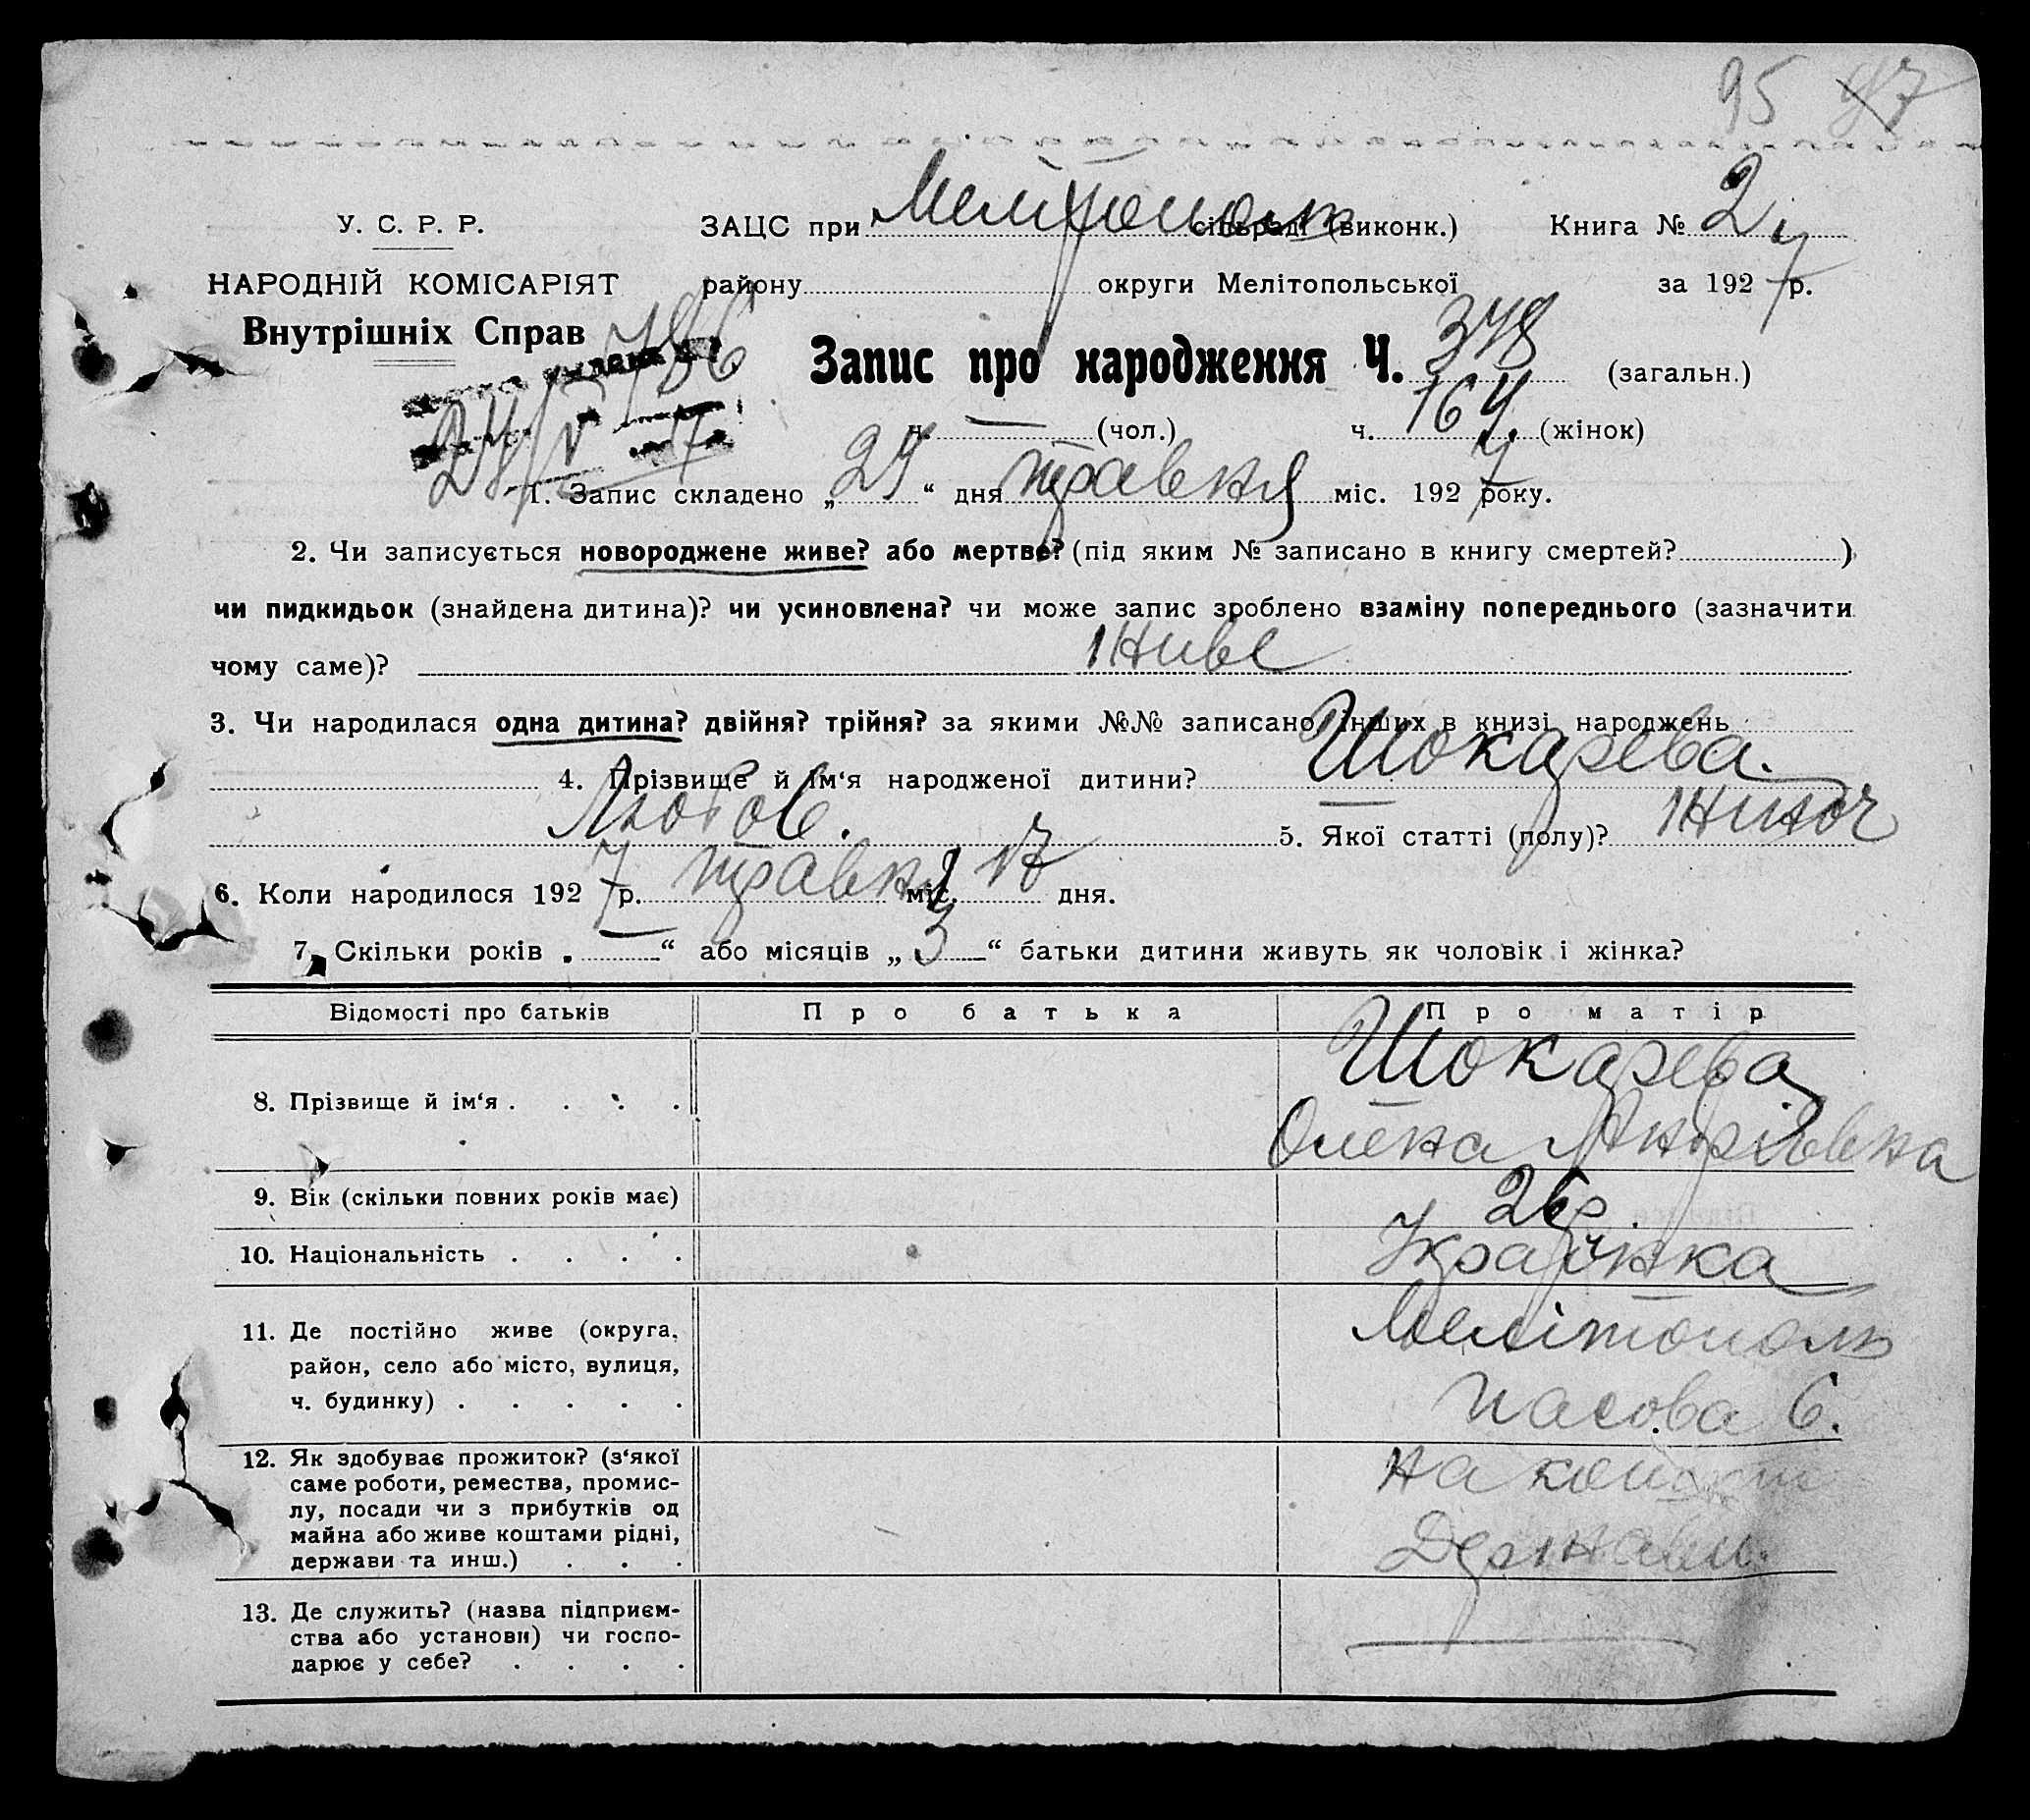 95 97
У. С. Р. Р. ЗАЦС при Мелітополь сільраді (виконк.) Книга № 2
НАРОДНІЙ КОМІСАРІЯТ району округи Мелітопольської за 1927 р.
Внутрішніх Справ 786
Запис про народження Ч. 378 (загальн.)
24/V 7 ч. — (чол.) ч. 164 (жінок)
1. Запис складено „24“ дня травня міс. 1927 року.
2. Чи записується новороджене живе? або мертве? (під яким № записано в книгу смертей? )
чи пидкидьок (знайдена дитина)? чи усиновлена? чи може запис зроблено взаміну попереднього (зазначити
чому саме)? живе
3. Чи народилася одна дитина? двійня? трійня? за якими №№ записано інших в книзі народжень
4. Прізвище й ім‘я народженої дитини? Шокарева.
Любов. 5. Якої статті (полу)? жіноч
6. Коли народилося 1927 р. травня міс. 17 дня.
7. Скільки років „—“ або місяців „3“ батьки дитини живуть як чоловік і жінка?
Відомості про батьків Про батька Про матір
8. Прізвище й ім‘я . . . . Шокарева
Олена Андріївна
9. Вік (скільки повних років має) 26 р.
10. Національність . . . . Українка
11. Де постійно живе (округа, Мелітополь
район, село або місто, вулиця,
ч. будинку) . . . . . 6.
12. Як здобуває прожиток? (з‘якої на кошти
саме роботи, ремества, промис-
лу, посади чи з прибутків од
майна або живе коштами рідні, Держави.
держави та инш.) . . .
13. Де служить? (назва підприєм-
ства або установи) чи госпо-
дарює у себе? . . . . —